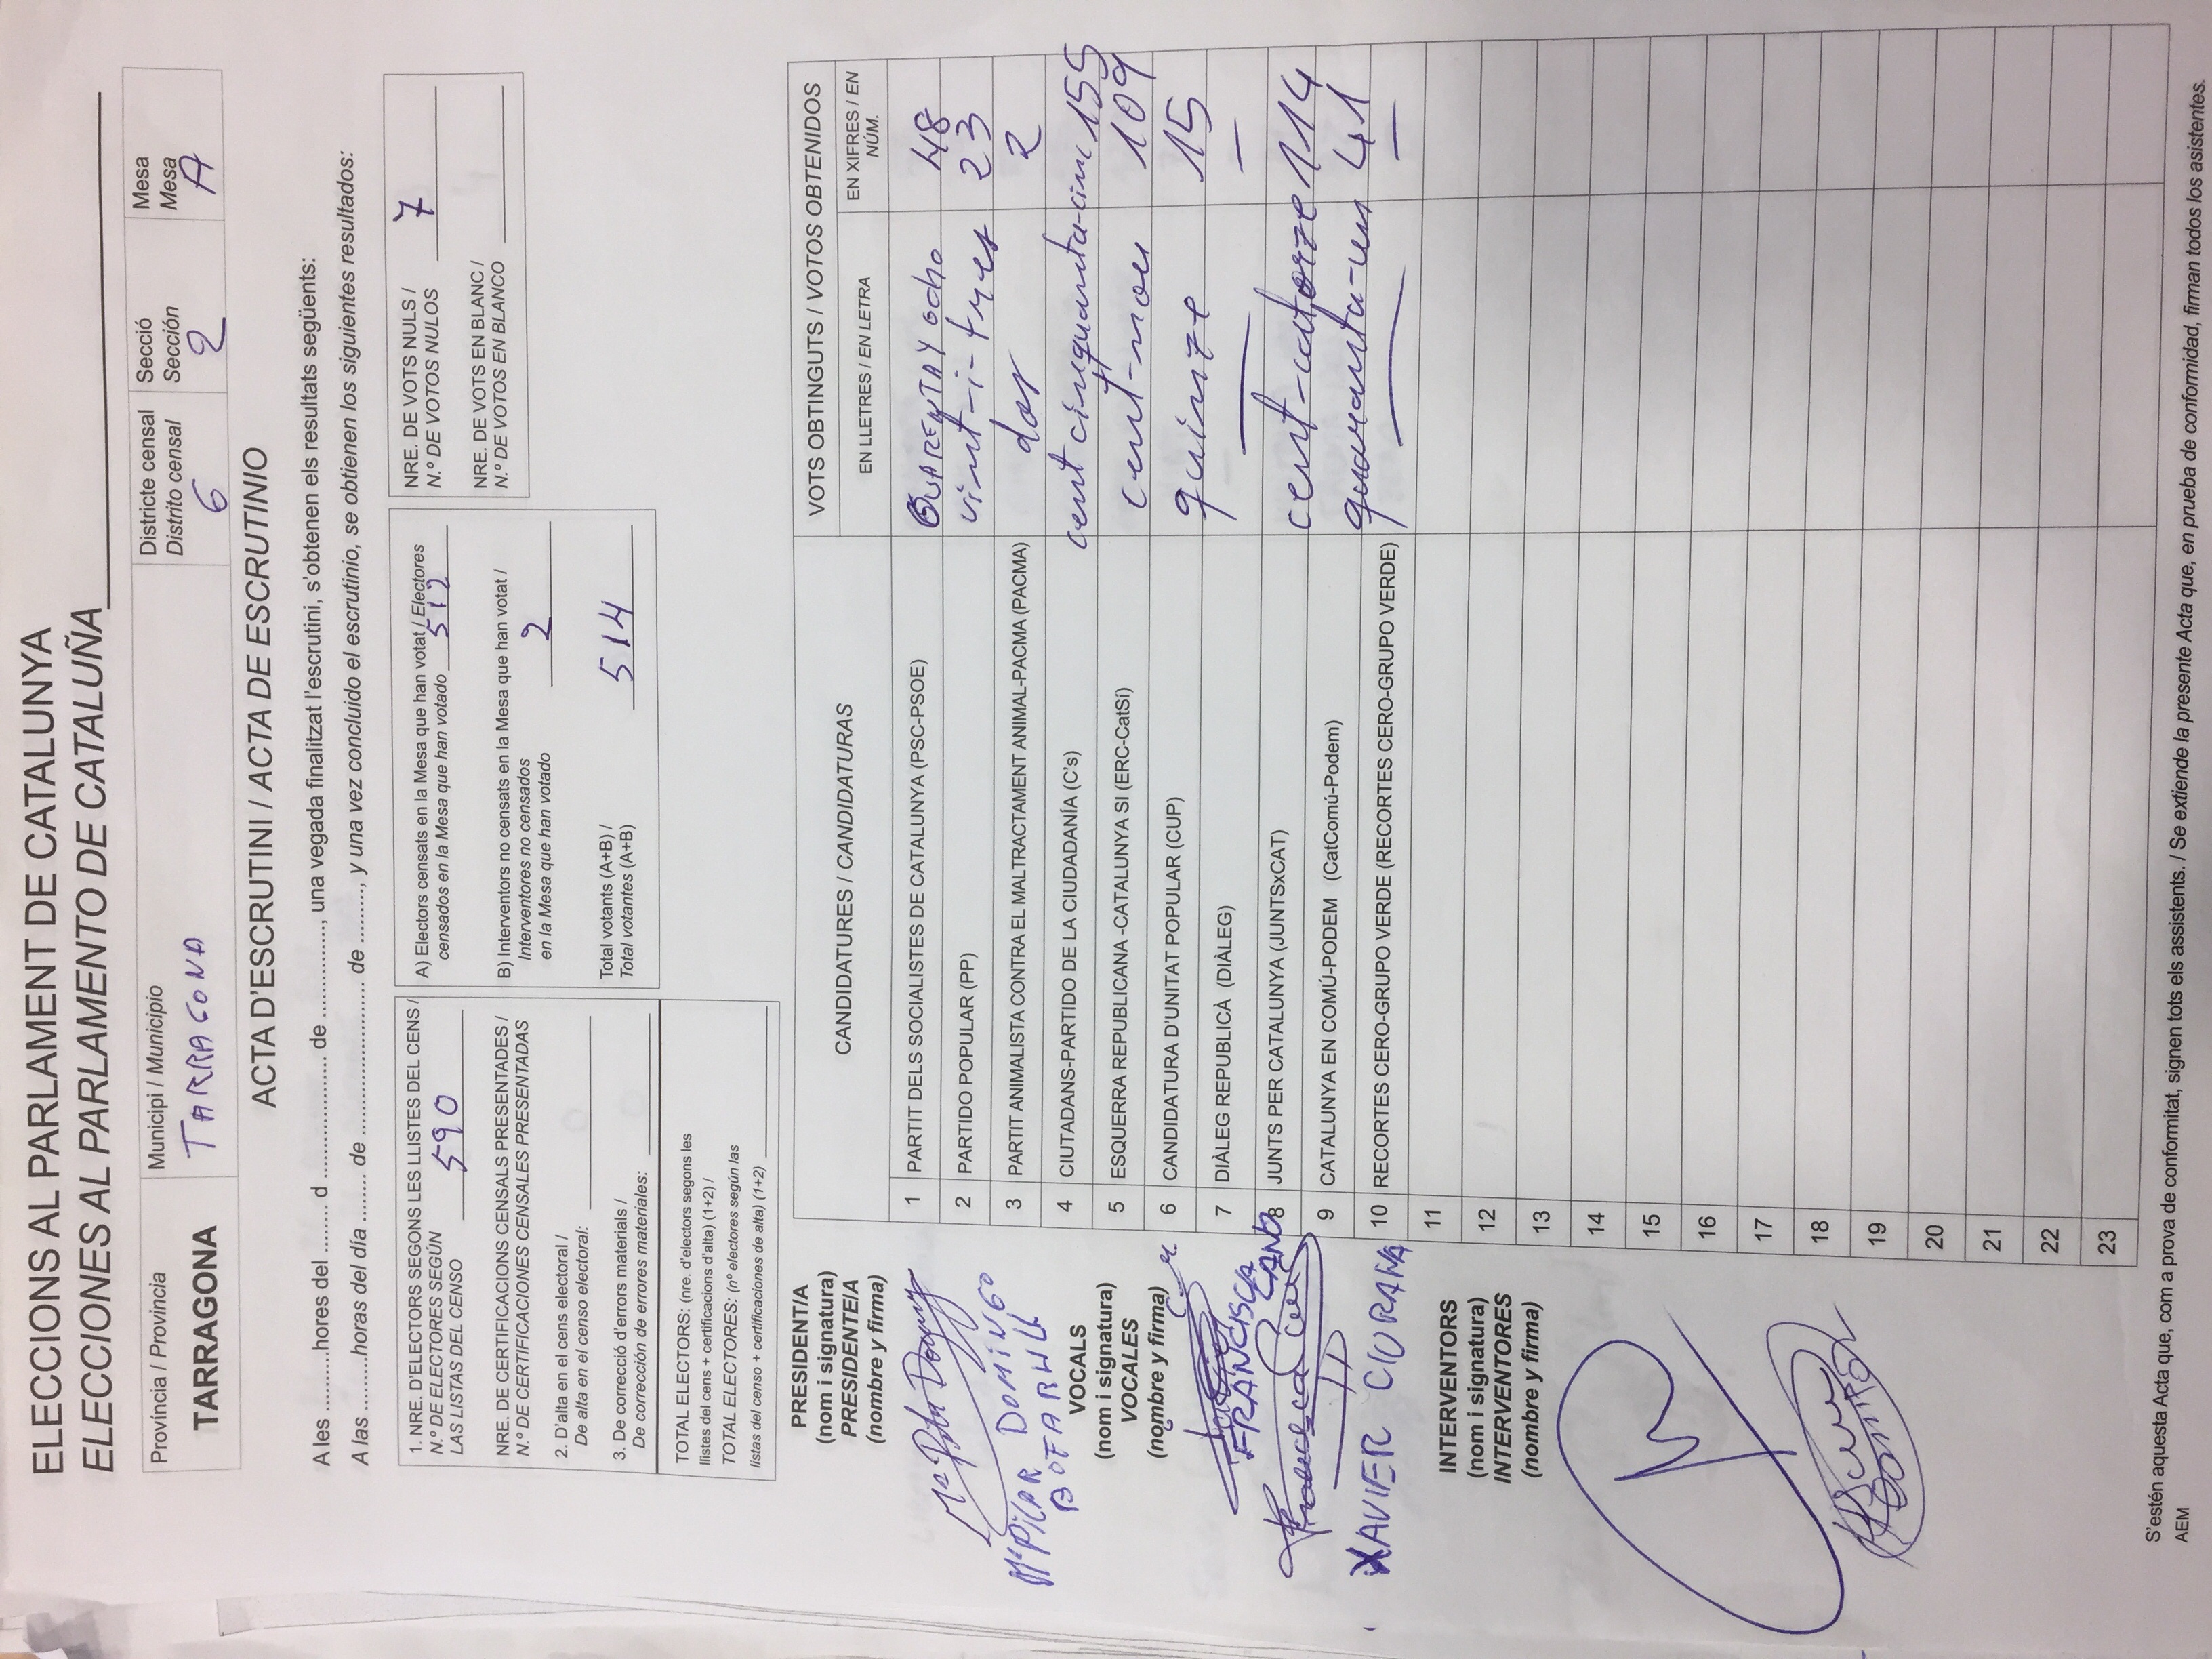 ELECCIONS AL PARLAMENT DE CATALUNYA
ELECCIONES AL PARLAMENTO DE CATALUÑA
Província / Provincia
TARRAGONA
Municipi / Municipio
TARRAGONA
Districte censal
Distrito censal
6
Secció
Sección
2
Mesa
Mesa
A
ACTA D'ESCRUTINI / ACTA DE ESCRUTINIO
A les ..........hores del ........ d .................... de ..............., una vegada finalitzat l'escrutini, s'obtenen els resultats següents:
A las .........horas del día ........ de ......................... de ........., y una vez concluido el escrutinio, se obtienen los siguientes resultados:
1. NRE. D'ELECTORS SEGONS LES LLISTES DEL CENS /
N.º DE ELECTORES SEGÚN
LAS LISTAS DEL CENSO 590
NRE. DE CERTIFICACIONS CENSALS PRESENTADES /
N.º DE CERTIFICACIONES CENSALES PRESENTADAS
2. D'alta en el cens electoral /
De alta en el censo electoral:
3. De correcció d'errors materials /
De corrección de errores materiales:
TOTAL ELECTORS: (nre. d'electors segons les
llistes del cens + certificacions d'alta) (1+2) /
TOTAL ELECTORES: (nº electores según las
listas del censo + certificaciones de alta) (1+2)
A) Electors censats en la Mesa que han votat / Electores
censados en la Mesa que han votado 512
B) Interventors no censats en la Mesa que han votat /
Interventores no censados
en la Mesa que han votado 2
Total votants (A+B) /
Total votantes (A+B) 514
NRE. DE VOTS NULS /
N.º DE VOTOS NULOS 7
NRE. DE VOTS EN BLANC /
N.º DE VOTOS EN BLANCO
PRESIDENT/A
(nom i signatura)
PRESIDENTE/A
(nombre y firma)
Mª PILAR DOMINGO
BOFARULL
VOCALS
(nom i signatura)
VOCALES
(nombre y firma)
FRANCISCA
CANO
XAVIER CIURANA
INTERVENTORS
(nom i signatura)
INTERVENTORES
(nombre y firma)
CANDIDATURES / CANDIDATURAS
VOTS OBTINGUTS / VOTOS OBTENIDOS
EN LLETRES / EN LETRA
EN XIFRES / EN
NÚM.
1 PARTIT DELS SOCIALISTES DE CATALUNYA (PSC-PSOE) QUARENTA Y ocho 48
2 PARTIDO POPULAR (PP) vint-i-tres 23
3 PARTIT ANIMALISTA CONTRA EL MALTRACTAMENT ANIMAL-PACMA (PACMA) dos 2
4 CIUTADANS-PARTIDO DE LA CIUDADANÍA (C's) cent cinquanta-cinc 155
5 ESQUERRA REPUBLICANA -CATALUNYA SI (ERC-CatSí) cent-nou 109
6 CANDIDATURA D'UNITAT POPULAR (CUP) quinze 15
7 DIÀLEG REPUBLICÀ (DIÀLEG) — —
8 JUNTS PER CATALUNYA (JUNTSxCAT) cent-catorze 114
9 CATALUNYA EN COMÚ-PODEM (CatComú-Podem) quaranta-un 41
10 RECORTES CERO-GRUPO VERDE (RECORTES CERO-GRUPO VERDE) — —
11
12
13
14
15
16
17
18
19
20
21
22
23
S'estén aquesta Acta que, com a prova de conformitat, signen tots els assistents. / Se extiende la presente Acta que, en prueba de conformidad, firman todos los asistentes.
AEM